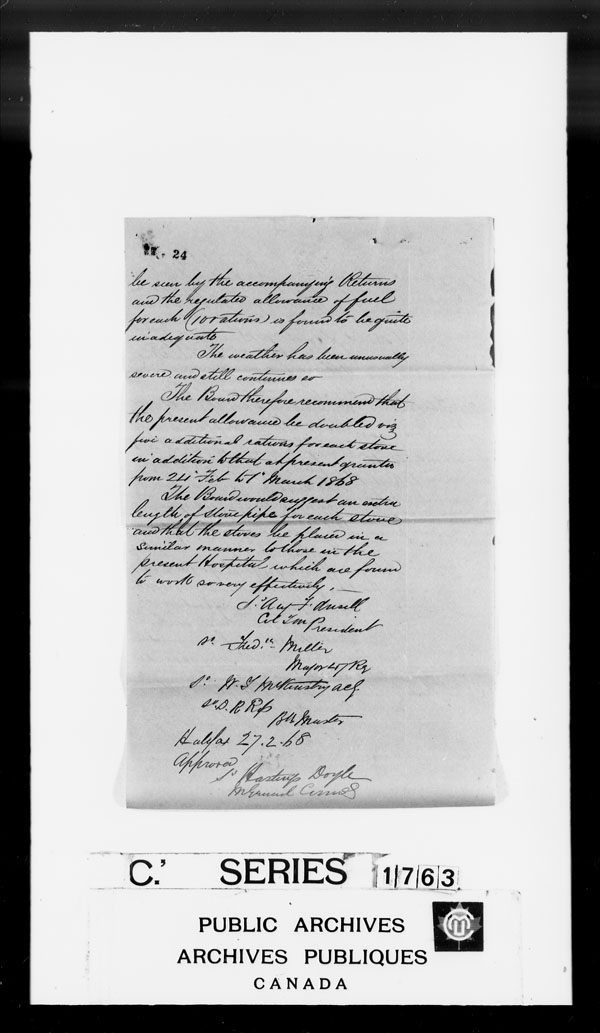 24
be seen by the accompanying Returns
and the regulated allowance of fuel
for each (10 rations) is found to be quite
inadequate
The weather has been unusually
severe and still continues so
The Board therefore recommend that
the present allowance be doubled viz
five additional rations for each stove
in addition to that at present granted
from 24 Feb to 1 March 1868
The Board would suggest an extra
length of stove pipe for each stove
and that the stoves be placed in a
similar manner to those in the
present Hospital which are found
to work so very effectively. —
F. Ansell
Col President
Sd. Fred. Miller
Major 47 Rg
Sd. W. S. McKinstry
Sd. D. R.
Bk Master
Halifax 27.2.68
Approved
Sd Hastings Doyle
M General
C.' SERIES 1763
PUBLIC ARCHIVES
ARCHIVES PUBLIQUES
CANADA